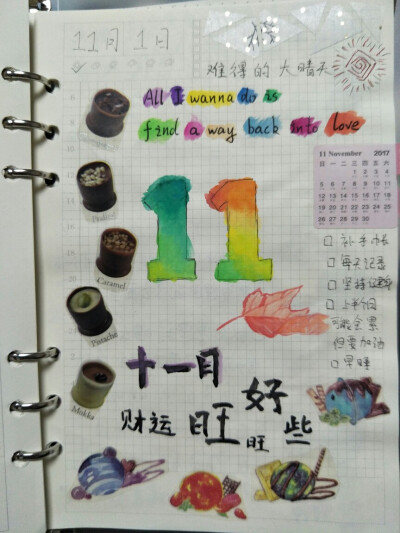 11月 1日
难得的大晴天
All I wanna do is
find a way back into love
11 November 2017
日 一 二 三 四 五 六
1 2 3 4
5 6 7 8 9 10 11
12 13 14 15 16 17 18
19 20 21 22 23 24 25
26 27 28 29 30
11
□ 补手帐
□ 每天记录
□ 坚持
□ 上半个月
可能会累
但要加油
□ 早睡
Caramel
Pistache
Mokka
十一月
好
财运旺旺些